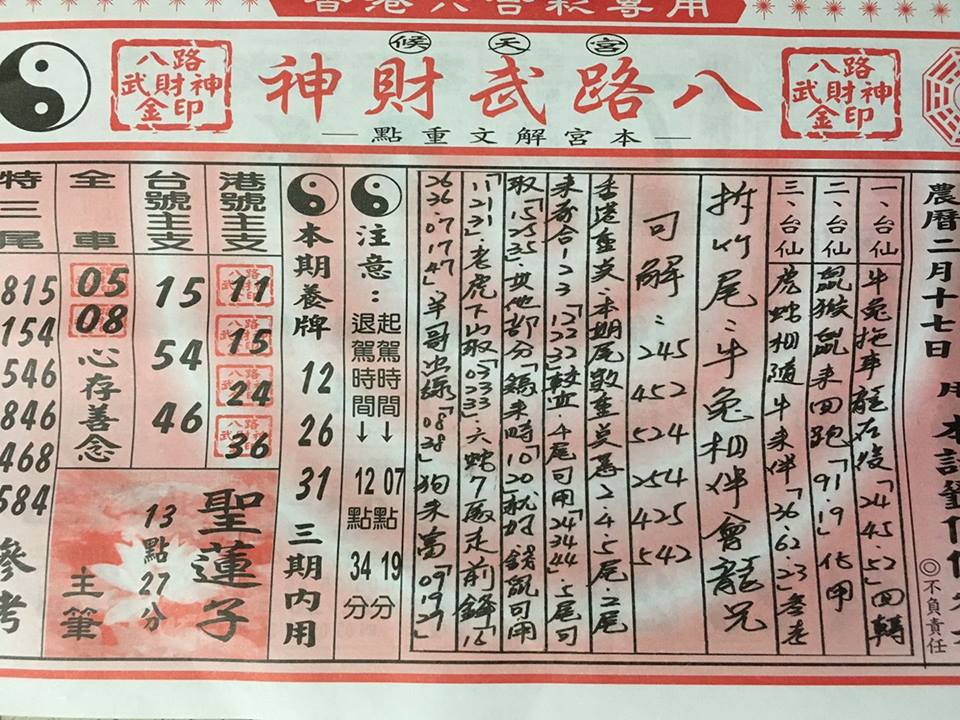 香港六合彩專用
天候宮
八路武財神
八路武財神金印
八路武財神金印
本宮解文重點
農曆二月十七日
◎不負責任
一、台仙 牛兔拖車龍在後「24.45.52」四轉
二、台仙 鼠猴鼠來四跑「91.19」化甲
三、台仙 虎蛇相隨牛來伴「26.62.23」
拆竹尾:牛兔相伴會龍兄
可解:245 452 524 254 425 542
香港重點:本期尾數重點為2.4.5尾.2尾
來豕合123「122232」較立.4尾可用「243444」.5尾可
取「152535」其他部分「鷄來時「1020」就好錢鼠可用
「112131」老虎下山取「032333」大蛇7厰走前鋒「16
2636.07.17.47」羊哥出綠「0828」狗來當「091927」
注意:
起駕時間↓07點19分
退駕時間↓12點34分
本期養牌 12 26 31 三期內用
港號主支
11
15
24
36
台號主支
15
54
46
全車
05
08
心存善念
聖蓮子
13點27分
主筆
特三尾
815
154
546
846
468
584
參考